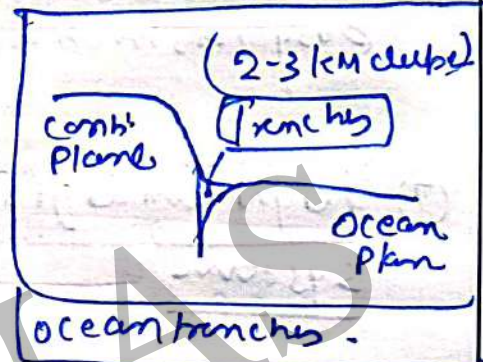 (2-3 km deeper)
Trenches
Conti
Plane
Ocean
Plan
IAS
Ocean trenches.